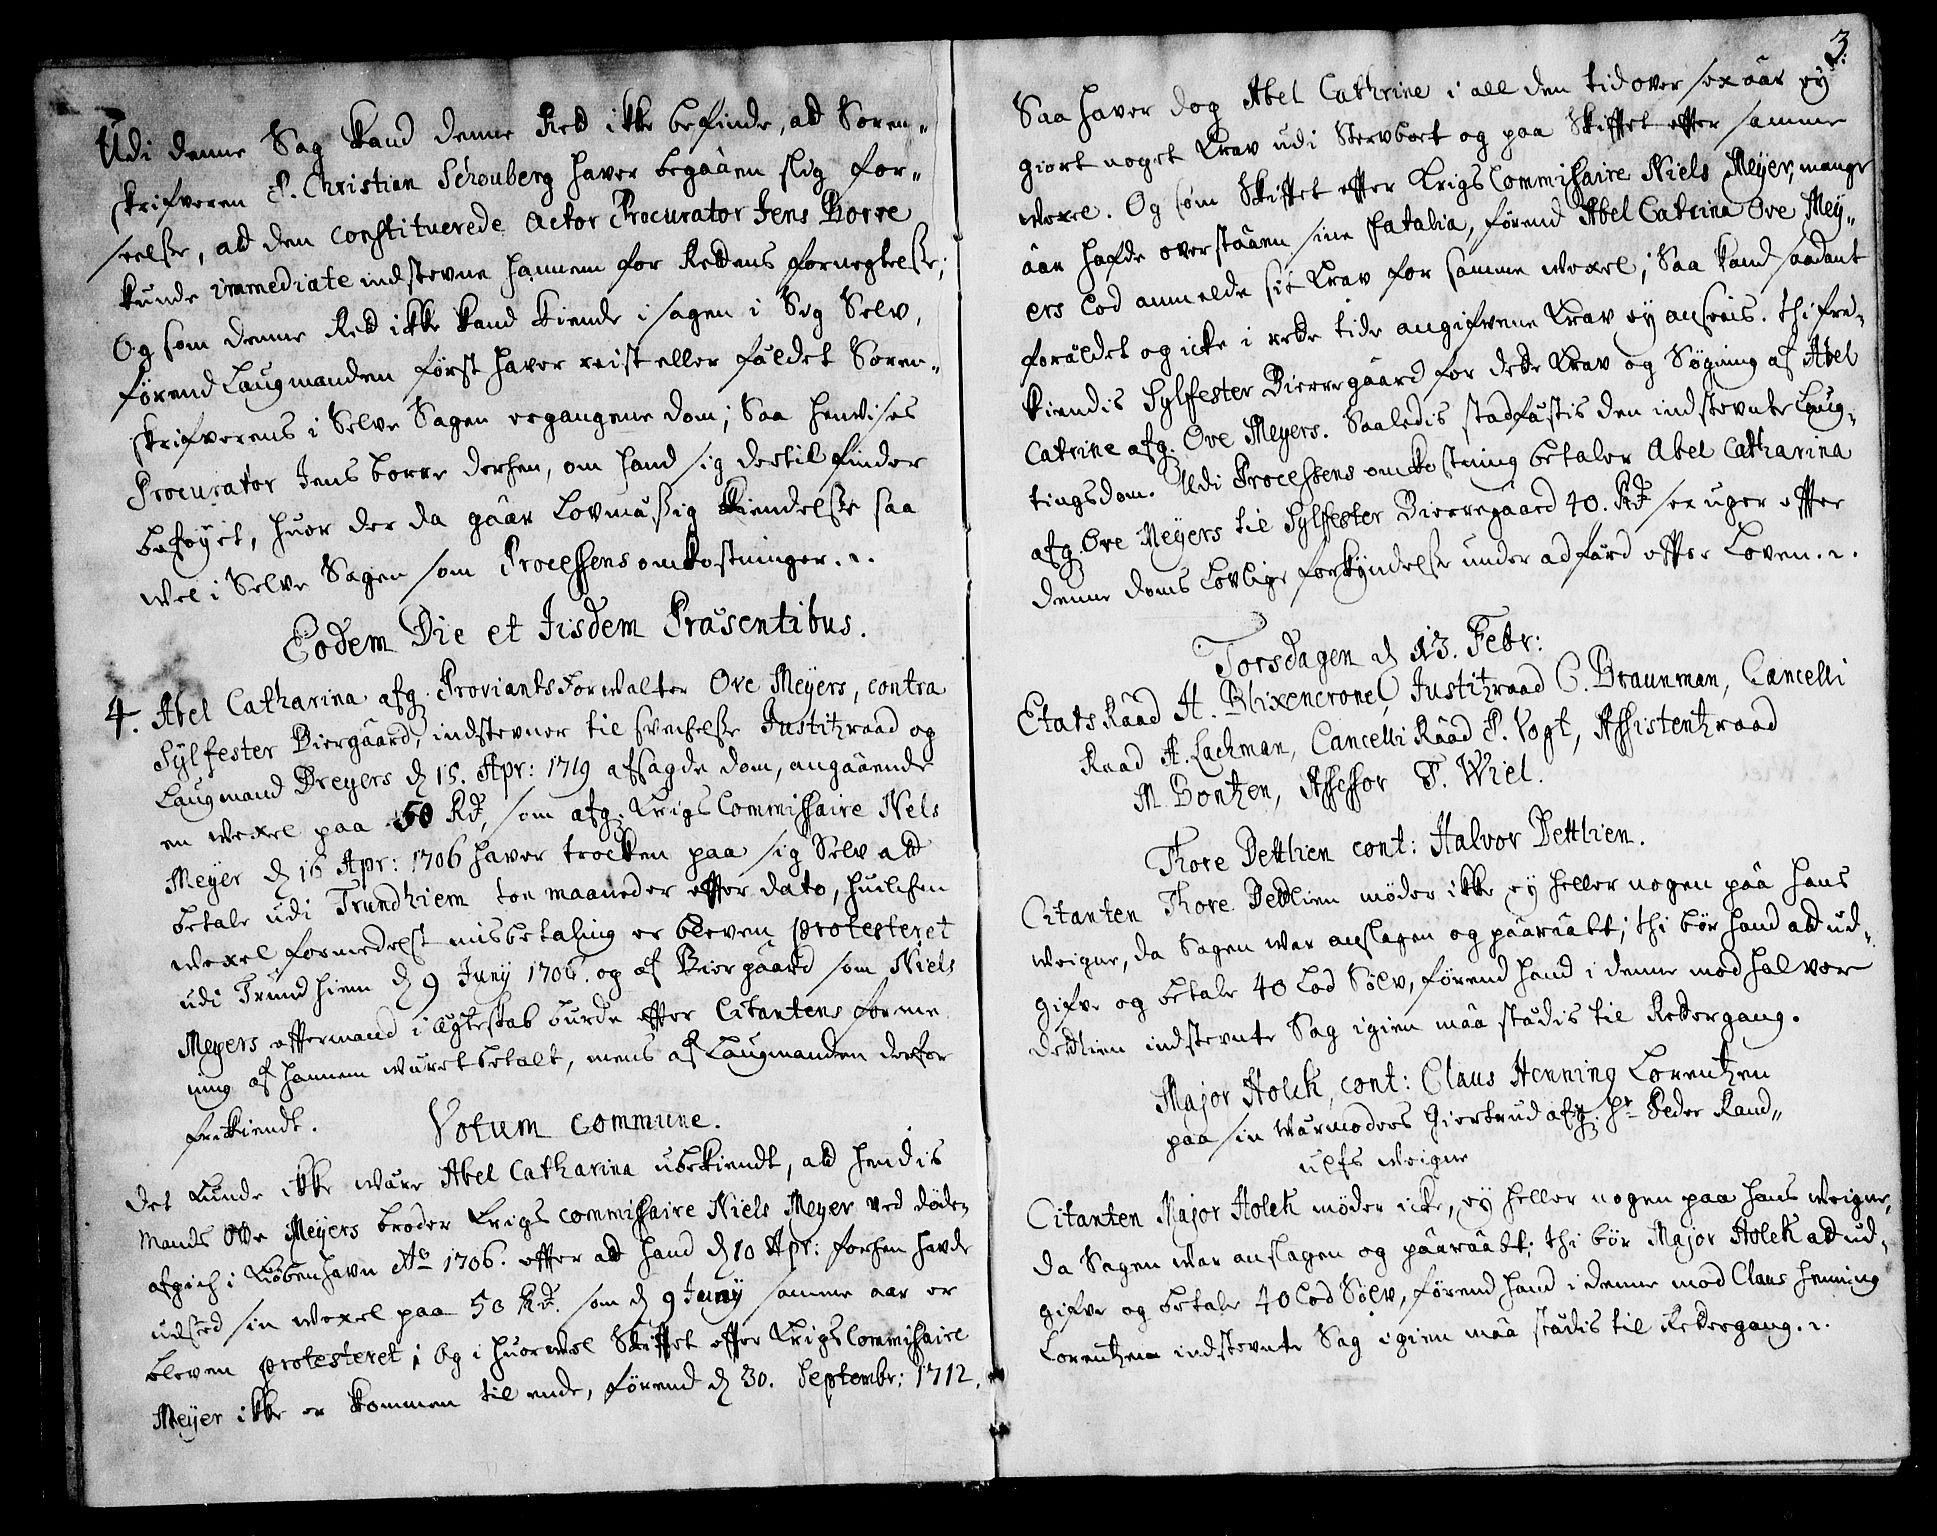 Udi denne Sag kand denne Rett ikke befinde, att Soren-
skrifveren P. Christian Schouberg haver begaaen slig for-
seelse, att den constituerede Actor Procurator Jens Borre
kunde immediate indstevne hannem for Rettens fornegtelse;
Og som denne Rett ikke kand kiende i sagen i Sig Selv,
førend Laugmanden først haver reist eller fäldet Soren-
skrifverens i Selve Sagen ergangene dom; Saa henvises
Procurator Jens borre derhen, om hand sig dertil finder
beføyet, huor der da gaar Lovmässig Kiendelse saa
vel i Selve Sagen som Processens omkostninger.
Eodem Die et Iisdem Præsentibus.
4. Abel Catharina afg. Proviantsforvalter Ove Meyers, contra
Sylfester Biergaard, indstevner til svechelse Justitzraad og
Laugmand Dreyers d 15. Apr: 1719 afsagde dom, angaaende
en vexel paa 50 Rd, som afg. Krigs Commissaire Niels
Meyer d 16 Apr: 1706 haver trocken paa sig Selv att
betale udi Trundhiem toe maaneder efter dato, huilchen
vexel formedelst misbetaling er bleven protesteret
udi Trundhiem d 9 Juny 1706. og af Biergaard som Niels
Meyers eftermand i Egteskab burde efter Citantens forme
ning af hannem väret betalt, mens af Laugmanden derfor
frikiendt.
Votum commune.
Det kunde ikke väre Abel Catharina ubekiendt, att hendis
Mands Ove Meyers broder Krigs commissaire Niels Meyer ved døden
afgich i Kiøbenhavn Ao 1706. efter att hand d 10 Apr: forhen havde
udsted sin vexel paa 50 Rd. som d 9 Juny samme aar er
bleven protesteret; Og i huorvel Skiftet efter Krigs Commissaire
Meyer ikke er kommen til ende, førend d 30. Septembr: 1712,
3.
Saa haver dog Abel Cathrine i all den tid over sex aar ey
giort noget Krav udi Stervboet og paa Skiftet efter samme
vexel. Og som Skiftet efter Krigs Commissaire Niels Meyer, mange
aar hafde overstaaen sine fatalia, førend Abel Catrina Ove Mey-
ers lod anmelde sit Krav for samme vexel; Saa kand saadant
foräldet og icke i rette tide angifvene Krav ey ansees. Thi fri-
kiendis Sylfester Bierregaard for dette Krav og Søgning af Abel
Catrine afg. Ove Meyers. Saaledis stadfästis den indstevnte Laug-
tingsdom. Udi Processens omkostning betaler Abel Catharina
afg. Ove Meyers til Sylfester Bierregaard 40. Rd sex uger efter
denne doms Lovlige forkyndelse under adfärd efter Loven.
Torsdagen d 13. Febr:
Etats Raad H. Blixencrone, Justitzraad C. Braunman, Cancelli
Raad A. Lachman, Cancelli Raad P. Vogt, Assistentzraad
M. Bontzen, Assessor P. Wiel.
Thore Dettlien cont: Halvor Dettlien.
Citanten Thore Dettlien møder ikke ey heller nogen paa hans
veigne, da Sagen var anslagen og paaraabt; thi bør hand att ud-
gifve og betale 40 Lod Sølv, førend hand i denne mod Halvor
Dettlien indstevnte Sag igien maa stædis til Rettergang.
Major Holck, cont: Claus Henning Lorentzen
paa sin Värmoders Giertrud afg. Hr Peder Rand-
ulfs veigne
Citanten Major Holck møder icke, ey heller nogen paa hans veigne,
da Sagen var anslagen og paaraabt; thi bør Major Holck att ud-
gifve og betale 40 Lod Sølv, førend hand i denne mod Claus Henning
Lorentzen indstevnte Sag igien maa stædis til Rettergang.